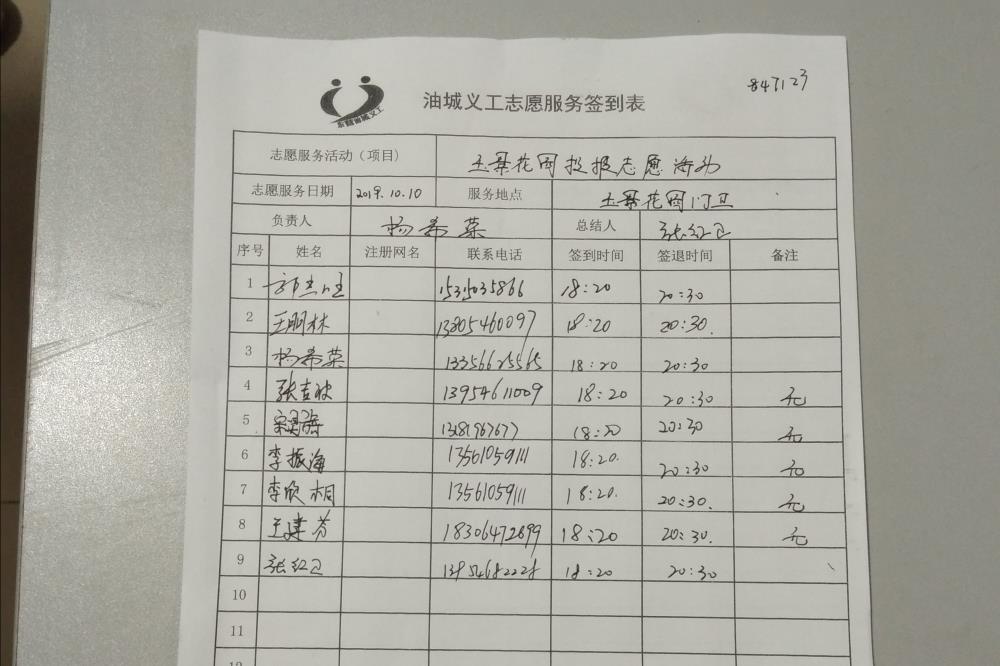 847123
油城义工志愿服务签到表
志愿服务活动（项目） 玉景花园投报志愿活动
志愿服务日期 2019.10.10 服务地点 玉景花园门卫
负责人 杨希荣 总结人 张红卫
序号 姓名 注册网名 联系电话 签到时间 签退时间 备注
1 15315035866 18:20 20:30
2 王明林 13805460097 18:20 20:30.
3 杨希荣 13356625565 18:20 20:30
4 13954611009 18:20 20:30 无
5 18:20 20:30 无
6 李振海 13561059111 18:20. 20:30 无
7 李欣桐 13561059111 18:20. 20:30. 无
8 王建芬 18306472899 18:20 20:30. 无
9 张红卫 13954682228 18:20 20:30
10
11